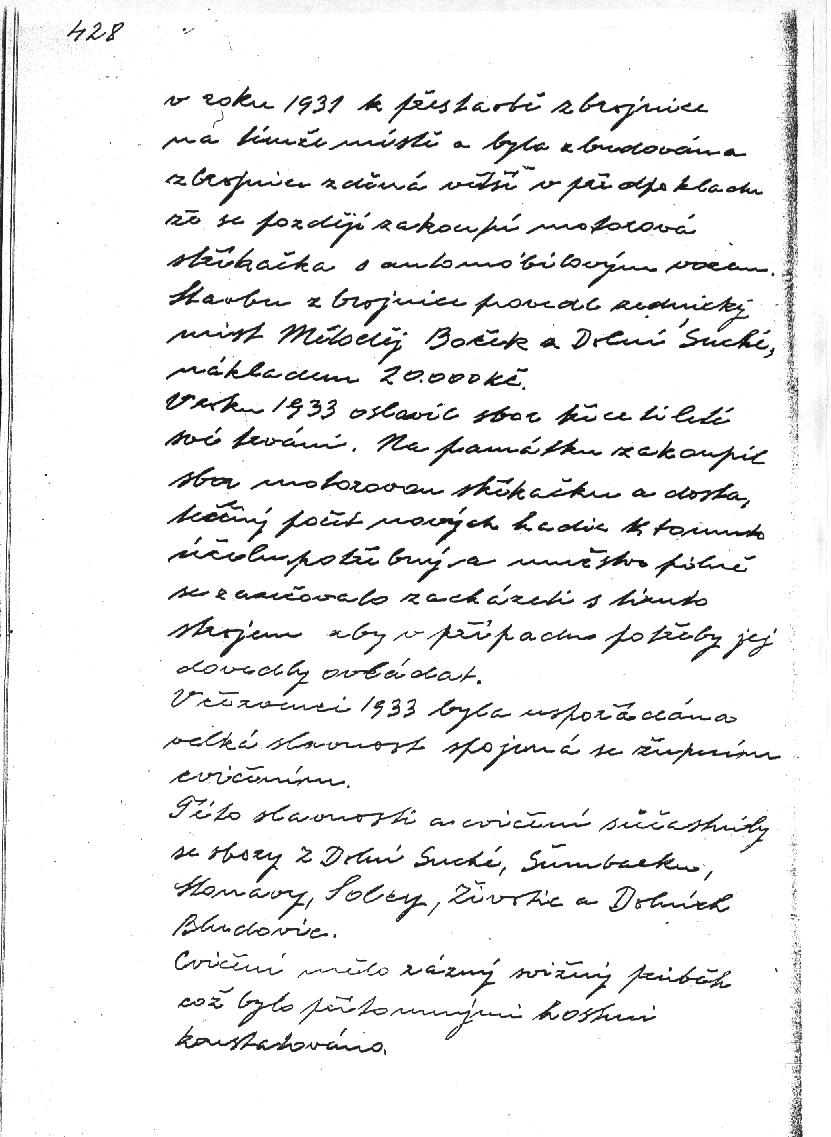 428
v roku 1931 k přestavbě zbrojnice
na tímže místě a byla zbudována
zbrojnice zděná větší v předpokladu
že se pozdějí zakoupí motorová
střikačka s automobilovým vozem.
Stavbu zbrojnice provedl zednický
mist Mětoděj Boček z Dolní Suché,
nákladem 20.000 Kč.
V roku 1933 oslavil sbor třicetileté
své trvání. Na památku zakoupil
sbor motorovou střikačku a dosta,
tečný počet nových hadic k tomuto
účelu potřebných a mužstvo pilně
se zacvičovalo zacházeti s tímto
strojem aby v případu potřeby jej
dovedly ovládat.
V červenci 1933 byla uspořádána
velká slavnost spojená se župním
cvičením.
Této slavnosti a cvičení súčastnily
se sbory z Dolní Suché, Šumbarku,
Stonavy, Solcy, Životic a Dolních
Bludovic.
Cvičení mělo rázný svižný průběh
což bylo přítomnými hostmi
konstatováno.